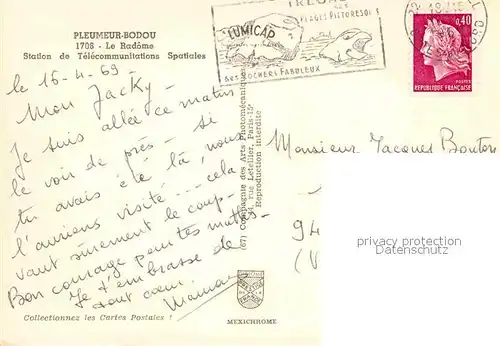 PLEUMEUR-BODOU
1708 - Le Radôme
Station de Télécommunications Spatiales
le 16-4-69-
Mon Jacky-
Je suis allée ce matin
le voir de près - si
tu avais été là, nous
l'aurions visité... cela
vaut sûrement le coup-
Bon courage pour tes maths-
Je t'embrasse de
tout cœur.
Maman
Collectionnez les Cartes Postales !
(67) Compagnie des Arts Photomécaniques
44, rue Letellier, Paris-15e
Reproduction interdite
MEXICHROME
PLAGES PITTORESQUES
LUMICAP
SES ROCHERS FABULEUX
0,40
POSTES
REPUBLIQUE FRANÇAISE
Monsieur Jacques Bouton
94
protection privacy
Datenschutz